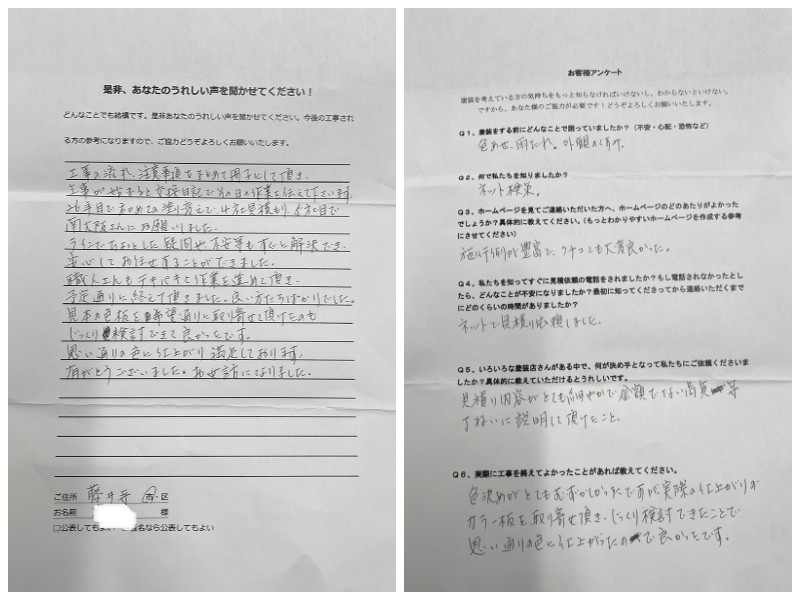 是非、あなたのうれしい声を聞かせてください!
どんなことでも結構です。是非あなたのうれしい声を聞かせてください。今後の工事され
る方の参考になりますので、ご協力どうぞよろしくお願いいたします。
工事の流れ、注意事項をまとめて冊子にして頂き、
工事が始まると交換日記でその日の作業を伝えて下さいます。
26年目で初めての塗り替えで4社見積もり、
南大阪さんにお願いしました。
ラインでちょっとした疑問や不安事もすぐに解決でき、
安心してお任せすることができました。
職人さんもテキパキと作業を進めて頂き、
予定通りに終えて頂きました。良い方たちばかりでした。
見本の色板を希望通りに取り寄せて頂けたのも
じっくり検討できて良かったです。
思い通りの色に仕上がり満足しております。
有がとうございました。お世話になりました。
ご住所 藤井寺 市 区
お名前 様
□公表してもよい 名なら公表してもよい
お客様アンケート
塗装を考えている方の気持ちをもっと知らなければいけないし、わからないといけない。
ですから、あなた様のご協力が必要です!どうぞよろしくお願いいたします。
Q1、塗装をする前にどんなことで困っていましたか?(不安・心配・恐怖など)
色あせ、雨だれ。外観の
Q2、何で私たちを知りましたか?
ネット検索。
Q3、ホームページを見てご連絡いただいた方へ、ホームページのどのあたりがよかった
でしょうか?具体的に教えてください。(もっとわかりやすいホームページを作成する参考
にさせてください)
施工例が豊富で、クチコミも大変良かった。
Q4、私たちを知ってすぐに見積依頼の電話をされましたか?もし電話されなかったとし
たら、どんなことが不安になりましたか?最初に知ってくださってから連絡いただくまで
にどのくらいの時間がありましたか?
ネットで見積り依頼しました。
Q5、いろいろな塗装店さんがある中で、何が決め手となって私たちにご依頼くださいま
したか?具体的に教えていただけるとうれしいです。
見積り内容がとても細やかで金額でない 等
ていねいに説明して頂けたこと。
Q6、実際に工事を終えてよかったことがあれば教えてください。
色決めがとてもむずかしかったですが実際の仕上がりの
カラー板を取り寄せ頂き、じっくり検討できたことで
思い通りの色に仕上がったので良かったです。